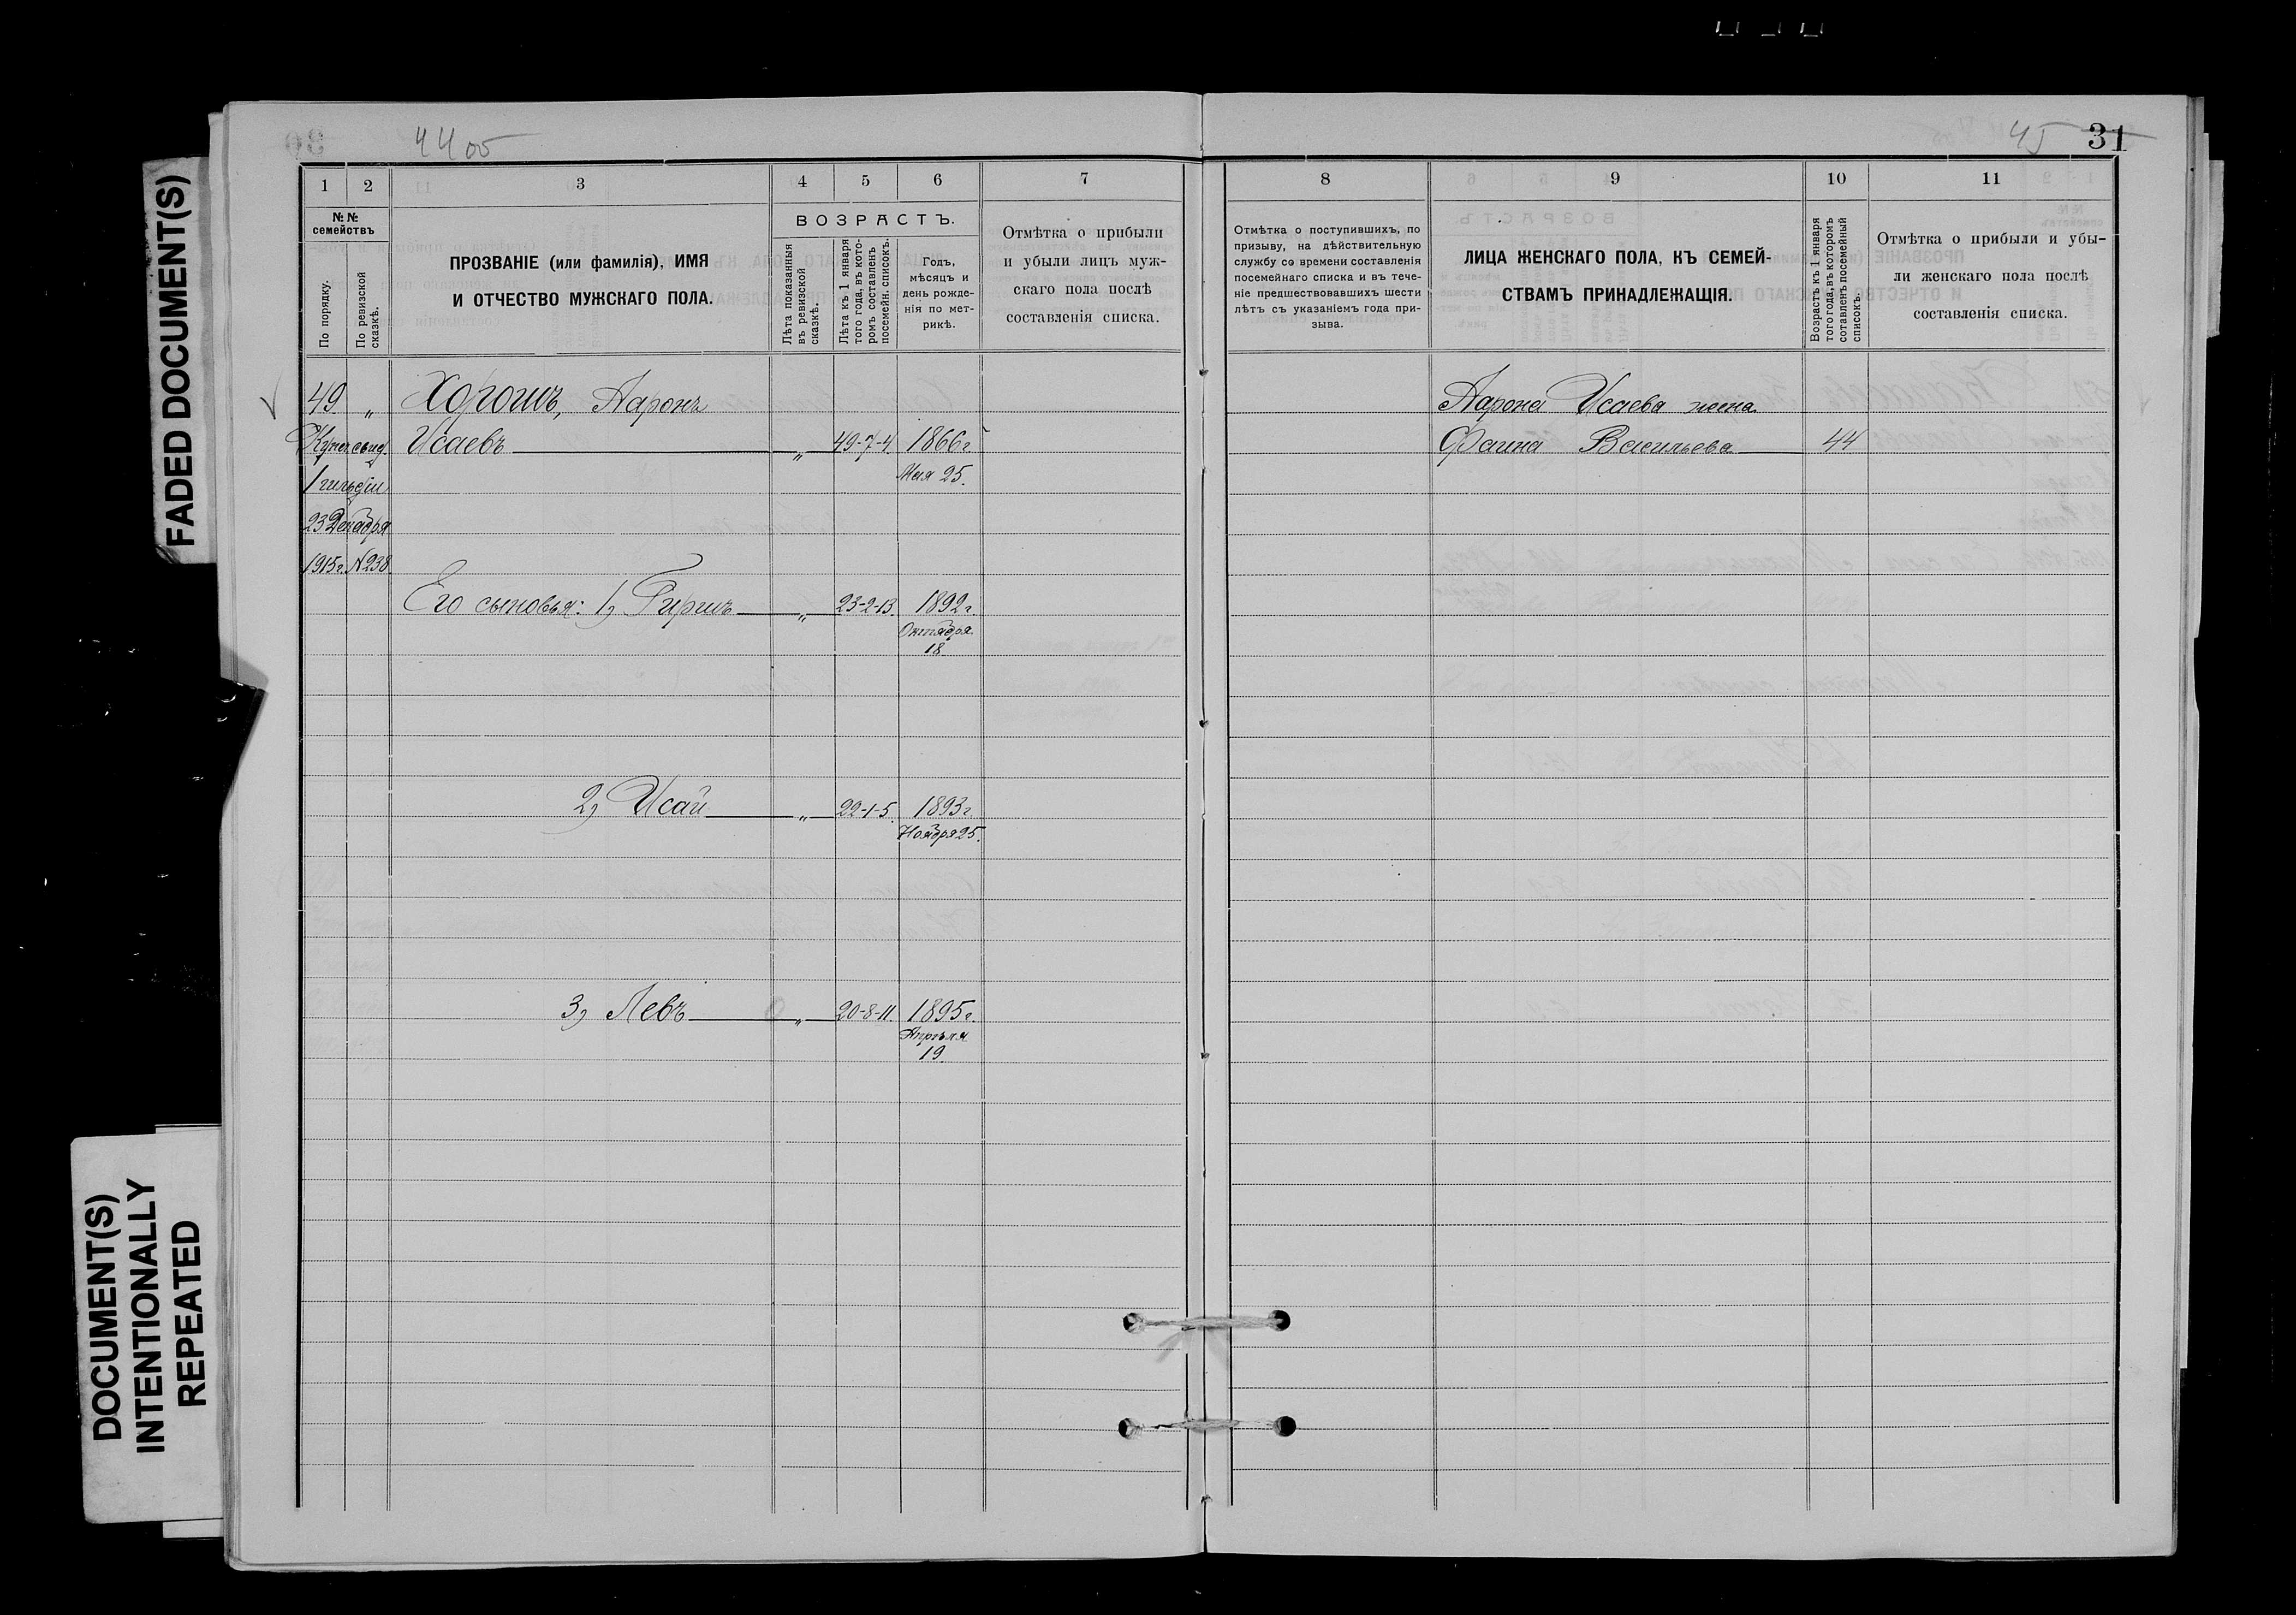 FADED DOCUMENT(S)
DOCUMENT(S)
INTENTIONALLY
REPEATED
44 об
1 2 3 4 5 6 7
№№ семействъ
По порядку.
По ревизской сказкѣ.
ПРОЗВАНІЕ (или фамилія), ИМЯ
И ОТЧЕСТВО МУЖСКАГО ПОЛА.
ВОЗРАСТЪ.
Лѣта показанныя въ ревизской сказкѣ.
Лѣта къ 1 января того года, въ которомъ составленъ посемейн. списокъ.
Годъ,
мѣсяцъ и
день рожде-
нія по мет-
рикѣ.
Отмѣтка о прибыли
и убыли лицъ муж-
скаго пола послѣ
составленія списка.
49 „ Хорошъ, Ааронъ
Купеч. свид. Исаевъ „ 49-7-4. 1866 г.
1 гильдіи Мая 25.
23 Декабря
1915 г. № 238.
Его сыновья: 1) Гиршъ „ 23-2-13. 1892 г.
Октября
18.
2) Исай „ 22-1-5. 1893 г.
Ноября 25.
3) Левъ „ 20-8-11. 1895 г.
Апрѣля
19.
45 31
8 9 10 11
Отмѣтка о поступившихъ, по
призыву, на дѣйствительную
службу со времени составленія
посемейнаго списка и въ тече-
ніе предшествовавшихъ шести
лѣтъ съ указаніемъ года при-
зыва.
ЛИЦА ЖЕНСКАГО ПОЛА, КЪ СЕМЕЙ-
СТВАМЪ ПРИНАДЛЕЖАЩІЯ.
Возрастъ къ 1 января
того года, въ которомъ
сотавленъ посемейный
списокъ.
Отмѣтка о прибыли и убы-
ли женскаго пола послѣ
составленія списка.
Аарона Исаева жена
Фаина Васильева 44